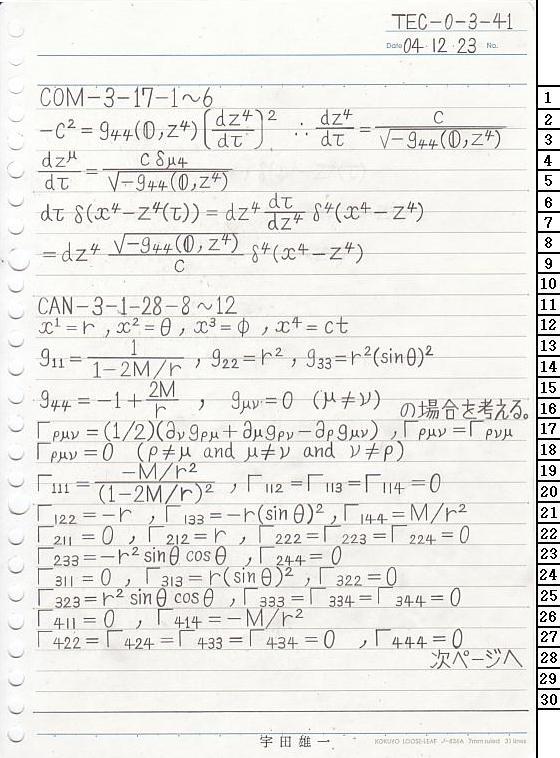 TEC-0-3-41
Date 04・12・23 No.
COM-3-17-1～6
-C² = g₄₄(𝟘, z⁴) (dz⁴/dτ)² ∴ dz⁴/dτ = C/√(-g₄₄(𝟘, z⁴))
dz^μ/dτ = C δ_μ4/√(-g₄₄(𝟘, z⁴))
dτ δ(x⁴-z⁴(τ)) = dz⁴ dτ/dz⁴ δ⁴(x⁴-z⁴)
= dz⁴ √(-g₄₄(𝟘, z⁴))/C δ⁴(x⁴-z⁴)
CAN-3-1-28-8～12
x¹=r , x²=θ , x³=φ , x⁴=ct
g₁₁ = 1/(1-2M/r) , g₂₂=r² , g₃₃=r²(sinθ)²
g₄₄ = -1+2M/r , g_μν=0 (μ≠ν) の場合を考える。
Γ_ρμν=(1/2)(∂_ν g_ρμ+∂_μ g_ρν-∂_ρ g_μν) , Γ_ρμν=Γ_ρνμ
Γ_ρμν=0 (ρ≠μ and μ≠ν and ν≠ρ)
Γ₁₁₁ = -M/r²/(1-2M/r)² , Γ₁₁₂=Γ₁₁₃=Γ₁₁₄=0
Γ₁₂₂=-r , Γ₁₃₃=-r(sinθ)² , Γ₁₄₄=M/r²
Γ₂₁₁=0 , Γ₂₁₂=r , Γ₂₂₂=Γ₂₂₃=Γ₂₂₄=0
Γ₂₃₃=-r² sinθ cosθ , Γ₂₄₄=0
Γ₃₁₁=0 , Γ₃₁₃=r(sinθ)² , Γ₃₂₂=0
Γ₃₂₃=r² sinθ cosθ , Γ₃₃₃=Γ₃₃₄=Γ₃₄₄=0
Γ₄₁₁=0 , Γ₄₁₄=-M/r²
Γ₄₂₂=Γ₄₂₄=Γ₄₃₃=Γ₄₃₄=0 , Γ₄₄₄=0
次ページへ
宇田雄一
KOKUYO LOOSE-LEAF ノ-836A 7mm ruled 31 lines
1
2
3
4
5
6
7
8
9
10
11
12
13
14
15
16
17
18
19
20
21
22
23
24
25
26
27
28
29
30